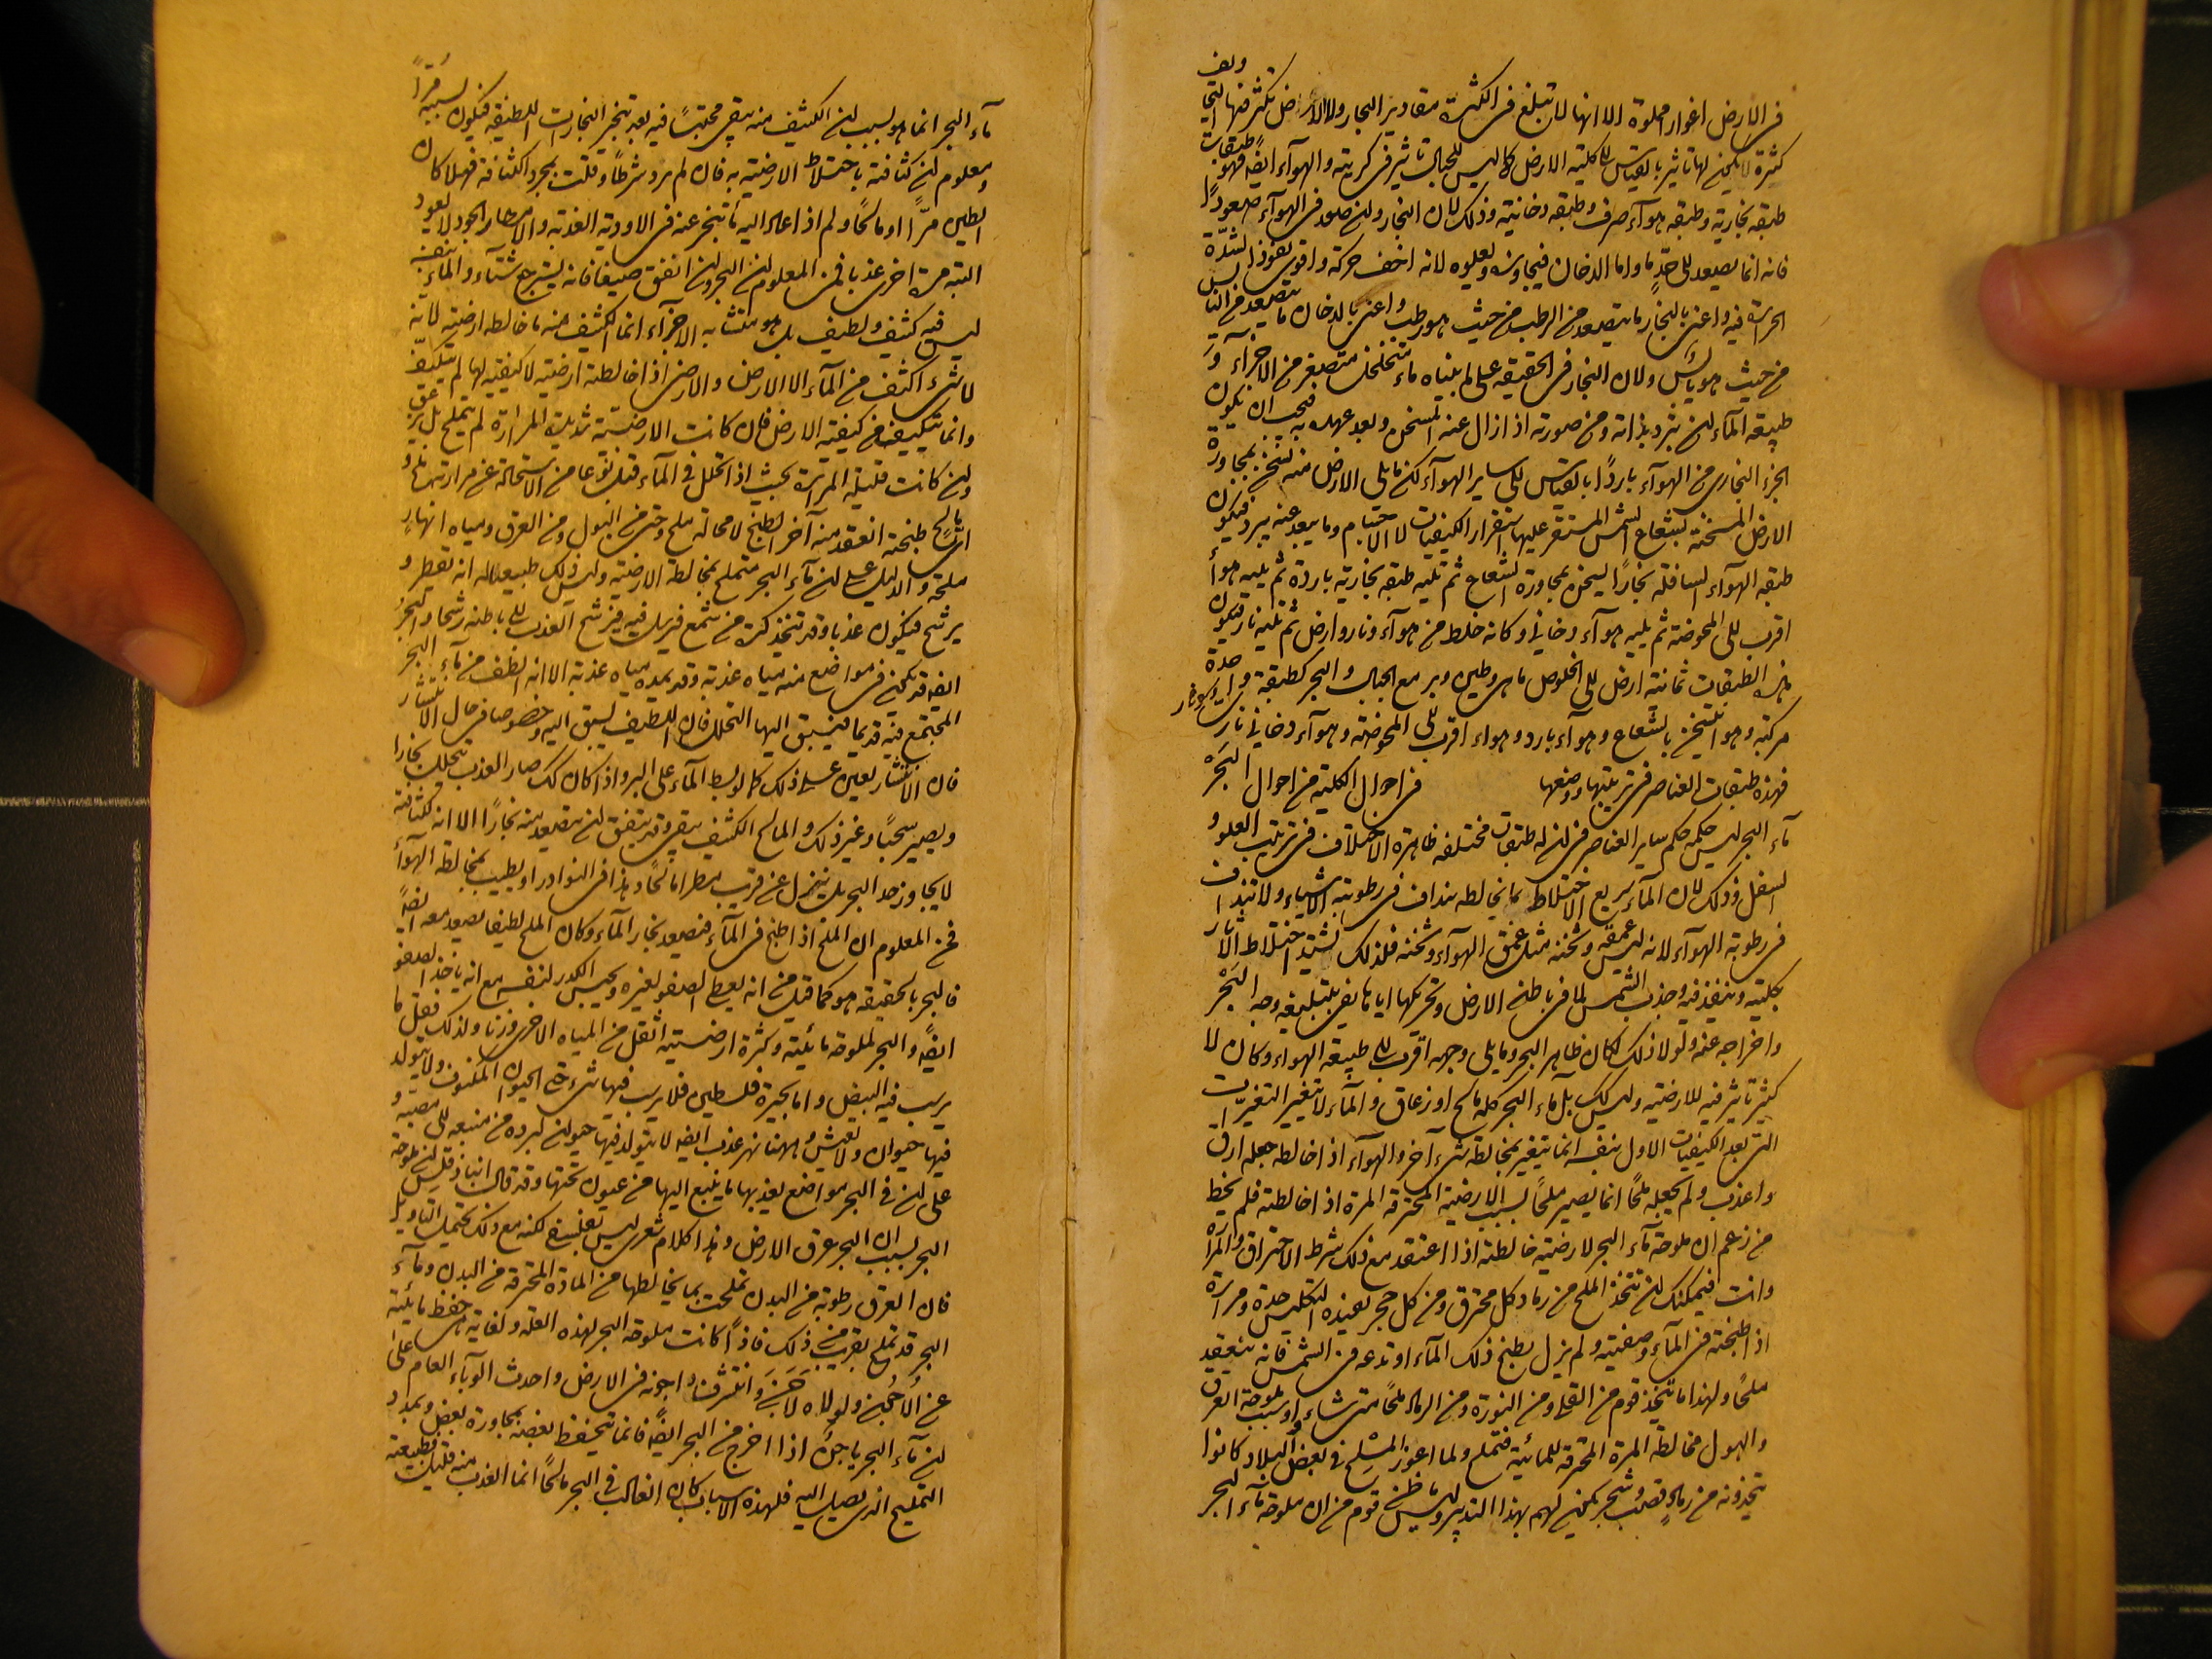 في الارض اغوار مملوة الا انها لا تبلغ في الكثرة مقادير البحار ولا الارض تكثر فيها
كثرة لا يكون لها تاثير بالقياس الى كلية الارض كما ليس للجبال تاثير في كريته والهواء ايضا فهو طبقات
طبقة بخارية وطبقة هواء صرف وطبقة دخانية وذلك لان البخار وان صعد في الهواء صعودا
فانه انما يصعد الى حد ما واما الدخان فيجاوزه ويعلوه لانه اخف حركة واقوى نفوذا لشدة
الحرارة فيه واعنى بالبخار ما يتصعد من الرطب من حيث هو رطب واعنى بالدخان ما يتصعد من اليابس
من حيث هو يابس ولان البخار في الحقيقة على ما بيناه ماء متخلخل متصغر من الاجزاء و
طبيعة الماء ان يبرد بذاته ومن صورته اذا زال عنه المسخن وبعد عهده به فيجب ان يكون
الجزء البخاري من الهواء باردا بالقياس الى ساير الهواء لكن ما يلى الارض منه يسخن بمجاورة
الارض المسخنة بشعاع الشمس المستقر عليها استقرار الكيفيات لا الاجسام وما يبعد عنه يبرد فيكون
طبقة الهواء السافلة بخارا يسخن بمجاورة الشعاع ثم تليه طبقة بخارية باردة ثم يليه هواء
اقرب الى المحوضة ثم يليه هواء دخاني وكانه خلط من هواء ونار وارض ثم تليه نار فيكون
هذه الطبقات ثمانية ارض الى الخلوص ما هي وطين وبر مع الجبال والبحر كطبقة واحدة
مركبة وهواء متسخن بالشعاع وهواء بارد وهواء اقرب الى المحوضة وهواء دخاني ناري ونار
فهذه طبقات العناصر في ترتيبها ووضعها في احوال الكلية من احوال البحر
ماء البحر ليس حكمه حكم ساير العناصر في ان له طبقات مختلفة ظاهرة الاختلاف في ترتيب العلو و
السفل وذلك لان الماء سريع الاختلاط بما يخالطه ينداف في رطوبته الاشياء ولا تنداف
في رطوبة الهواء لانه ليس عمقه وثخنه مثل عمق الهواء وثخنه فلذلك يشتد اختلاط الاثار
بكليته وينفذ فيه وجذب الشمس لما في باطن الارض وتحريكها اياه يفي بتبليغه وجه البحر
واخراجه عنه ولولا ذلك لكان ظاهر البحر وما يلى وجهه اقرب الى طبيعة الهواء وكان لا
كثير تاثر فيه للارضية وليس كك بل ماء البحر كله مالح او زعاق والماء لا يتغير التغيرات
التى بعد الكيفيات الاول بنفسه انما يتغير بمخالطة شيء آخر والهواء اذا خالطه جعله ارق
واعذب ولم يجعله ملحا انما يصير ملحا بسبب الارضية المحترقة المرة اذا خالطته فلم يخط
من زعم ان ملوحة ماء البحر لارضية خالطته اذا اعتقد مع ذلك شرط الاحتراق والمرارة
وانت فيمكنك ان تتخذ الملح من رماد كل محترق ومن كل حجر يفيده التكليس حدة ومرارة
اذا طبخته في الماء وصفيته ولم يزل يطبخ ذلك الماء او تدعه في الشمس فانه ينعقد
ملحا ولهذا ما يتخذ قوم من القلى ومن النورة ومن الرماد ملحا متى شاءوا وسبب ملوحة العرق
والبول مخالطة المرة المحترقة للمائية فتملح ولما اعوز الملح في بعض البلاد كانوا
يتخذونه من رماد قصب وشجر يكون لهم بهذا التدبير وليس ما ظن قوم من ان ملوحة ماء البحر
ماء البحر انما هو بسبب ان الكثيف منه يبقى محتبسا فيه بعد تبخر البخارات اللطيفة فيكون بسببه مرّا
ومعلوم ان كثافته باختلاط الارضية به فان لم يرد شرطا وقلت بمجرد الكثافة فهلا كان
الطين مرّا او مالحا ولم اذا عاد اليه ما تبخر عنه في الاودية العذبة والامطار الجود لا يعود
البتة مرة اخرى عذبا فمن المعلوم ان البحر وان اتفق صيفا فانه يسترجع شتاء والماء بنفسه
ليس فيه كثيف ولطيف بل هو متشابه الاجزاء انما الكثيف منه ما خالطه ارضية لانه
لا شيء اكثف من الماء الا الارض والارض اذا خالطته ارضية لا كيفية لها لم يتكيف
وانما تتكيف من كيفية الارض فان كانت الارضية شديدة المرارة لم يتملح بل زعق
وان كانت قليلة المرارة بحيث اذا تحلل في الماء قبل نوعا من الاستحالة عن مرارتها ملح و
المالح طبخته انعقد منه آخر الطبخ لا محالة ملح وحتى من البول ومن العرق ومياه انهار
ملحة والدليل على ان ماء البحر يتملح بمخالطة الارضية وليس ذلك طبيعيا له انه تقطر و
يرشح فيكون عذبا وقد تتخذ كرة من شمع فيرسل فيه فيرشح العذب الى باطنه رشحا والبحر
ايضا قد يكون في مواضع منه مياه عذبة وقد يمده مياه عذبة الا انه الطف من ماء البحر
المجتمع فيه قديما فيسبق اليها التحلل فان اللطيف يسبق اليه وخصوصا في حال الانتشار
فان الانتشار يعين على ذلك كما لو بسط الماء على البر واذا كان كك صار العذب يتحلل بخارا
ويصير سحبا وغير ذلك والمالح الكثيف يبقى وقد يتفق ان يتصعد منه بخار الا انه لكثافته
لا يجاوز حد البحر بل ينزل عن قريب مطرا مالحا وهذا في النوادر او يطيب بمخالطة الهواء
فمن المعلوم ان الملح اذا طبخ في الماء فتصعد بخار الماء وكان الملح لطيفا يصعد معه ايضا
فالبحر بالحقيقة هو كما قيل من انه يعطى الصفو لغيره ويحبس الكدر لنفسه مع انه ياخذ الصفو
ايضا والبحر لملوحة مائيته وكثرة ارضيته اثقل من المياه الاخرى وزنا ولذلك فقل ما
يرسب فيه البيض واما بحيرة فلسطين فلا يرسب فيها شيء حتى الحيوان المكتوف ولا يتولد
فيها حيوان ولا يعيش وهنا نهر عذب ايضا لا يتولد فيها حيوان لبرده من منبعه الى مصبه و
على ان في البحر مواضع يعذبها ما ينبع اليها من عيون تحتها وقد قال انباذقليس ان ملوحة
البحر بسبب ان البحر عرق الارض وهذا كلام شعري ليس بفلسفي لكنه مع ذلك يحتمل التاويل
فان العرق رطوبة من البدن تملحت بما يخالطها من المادة المحترقة من البدن وماء
البحر قد تملح بقريب من ذلك فاذا كانت ملوحة البحر لهذه العلة ولغاية هي حفظ مائيته
عن الاجون ولولاه لاجن وانتشرت اجونه في الارض واحدث الوباء العام على
ان ماء البحر ياجن اذا اخرج من البحر ايضا فانما ينحفظ بعضه بمجاورة بعض وبمدد
التمليح الذى يصل اليه فلهذه الاسباب كان الغالب في البحر مالحا انما العذب منه قليل فطبيعته